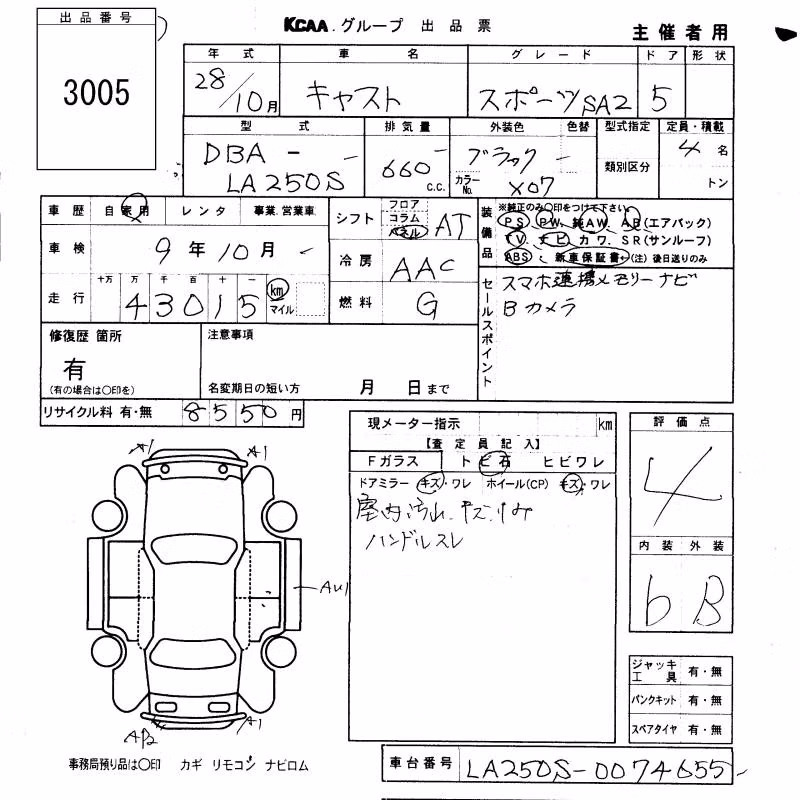 出品番号
3005
KCAA.グループ 出品票
主催者用
年式 車名 グレード ドア 形状
28/10月 キャスト スポーツSA2 5
型式 排気量 外装色 色替 型式指定 定員・積載
DBA - LA250S 660 c.c. ブラック カラーNo. X07 類別区分 4名 トン
車歴 自家用 レンタ 事業.営業車
車検 9年10月
走行 十万 万 千 百 十 一
43015 km マイル
シフト フロア コラム パネル AT
冷房 AAC
燃料 G
装備品 ※純正のみ○印をつけて下さい。
PS、PW、純AW、AB(エアバック)
TV、ナビ、カワ、SR(サンルーフ)
ABS、新車保証書←(注)後日送りのみ
セールスポイント
スマホ連携メモリーナビ
Bカメラ
修復歴 箇所
有
(有の場合は○印を)
注意事項
名変期日の短い方 月 日まで
リサイクル料 有・無 8550円
現メーター指示 km
【査定員記入】
Fガラス ト ビ石 ヒビワレ
ドアミラー キズ・ワレ ホイール(CP) キズ・ワレ
室内汚れ.キズ.リみ
ハンドルスレ
評価点
4
内装 外装
b B
A1 A1
AU1
AP2 A1
ジャッキ工具 有・無
パンクキット 有・無
スペアタイヤ 有・無
事務局預り品は○印 カギ リモコン ナビロム
車台番号 LA250S-0074655